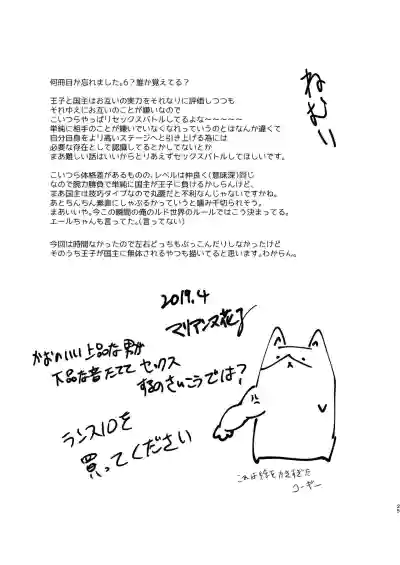 何冊目か忘れました。6？誰か覚えてる？
ねむい
王子と国主はお互いの実力をそれなりに評価しつつも
それゆえにお互いのことが嫌いなので
こいつらやっぱりセックスバトルしてるよな〜〜〜〜〜
単純に相手のことが嫌いでいなくなれっていうのとはなんか違くて
自分自身をより高いステージへと引き上げる為には
必要な存在として認識してるとかしてないとか
まあ難しい話はいいからとりあえずセックスバトルしてほしいです。
こいつら体格差があるものの、レベルは仲良く(意味深)同じ
なので腕力勝負で単純に国主が王子に負けるかしらんけど、
まあ国主は技巧タイプなので丸腰だと不利なんじゃないですかね。
あとちんちん素直にしゃぶるかっていうと噛み千切られそう。
まあいいや。今この瞬間の俺のルド世界のルールではこう決まってる。
エールちゃんも言ってた。(言ってない)
今回は時間なかったので左右どっちもぶっこんだりしなかったけど
そのうち王子が国主に無体されるやつも描いてると思います。わからん。
2019.4
マリアンヌ花子
かおのいい上品な男が
下品な音たてて セックス
するのさいこうでは？
ランス10を
買ってください
これは線をかきすぎた
コーギー
25